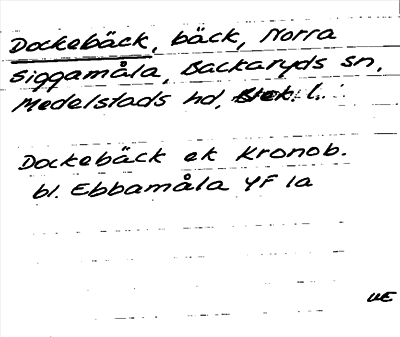 Dockebäck, bäck, Norra
Siggamåla, Backaryds sn,
Medelstads hd, Blek. l.
Dockebäck ek Kronob.
bl. Ebbamåla 4F 1a
UE